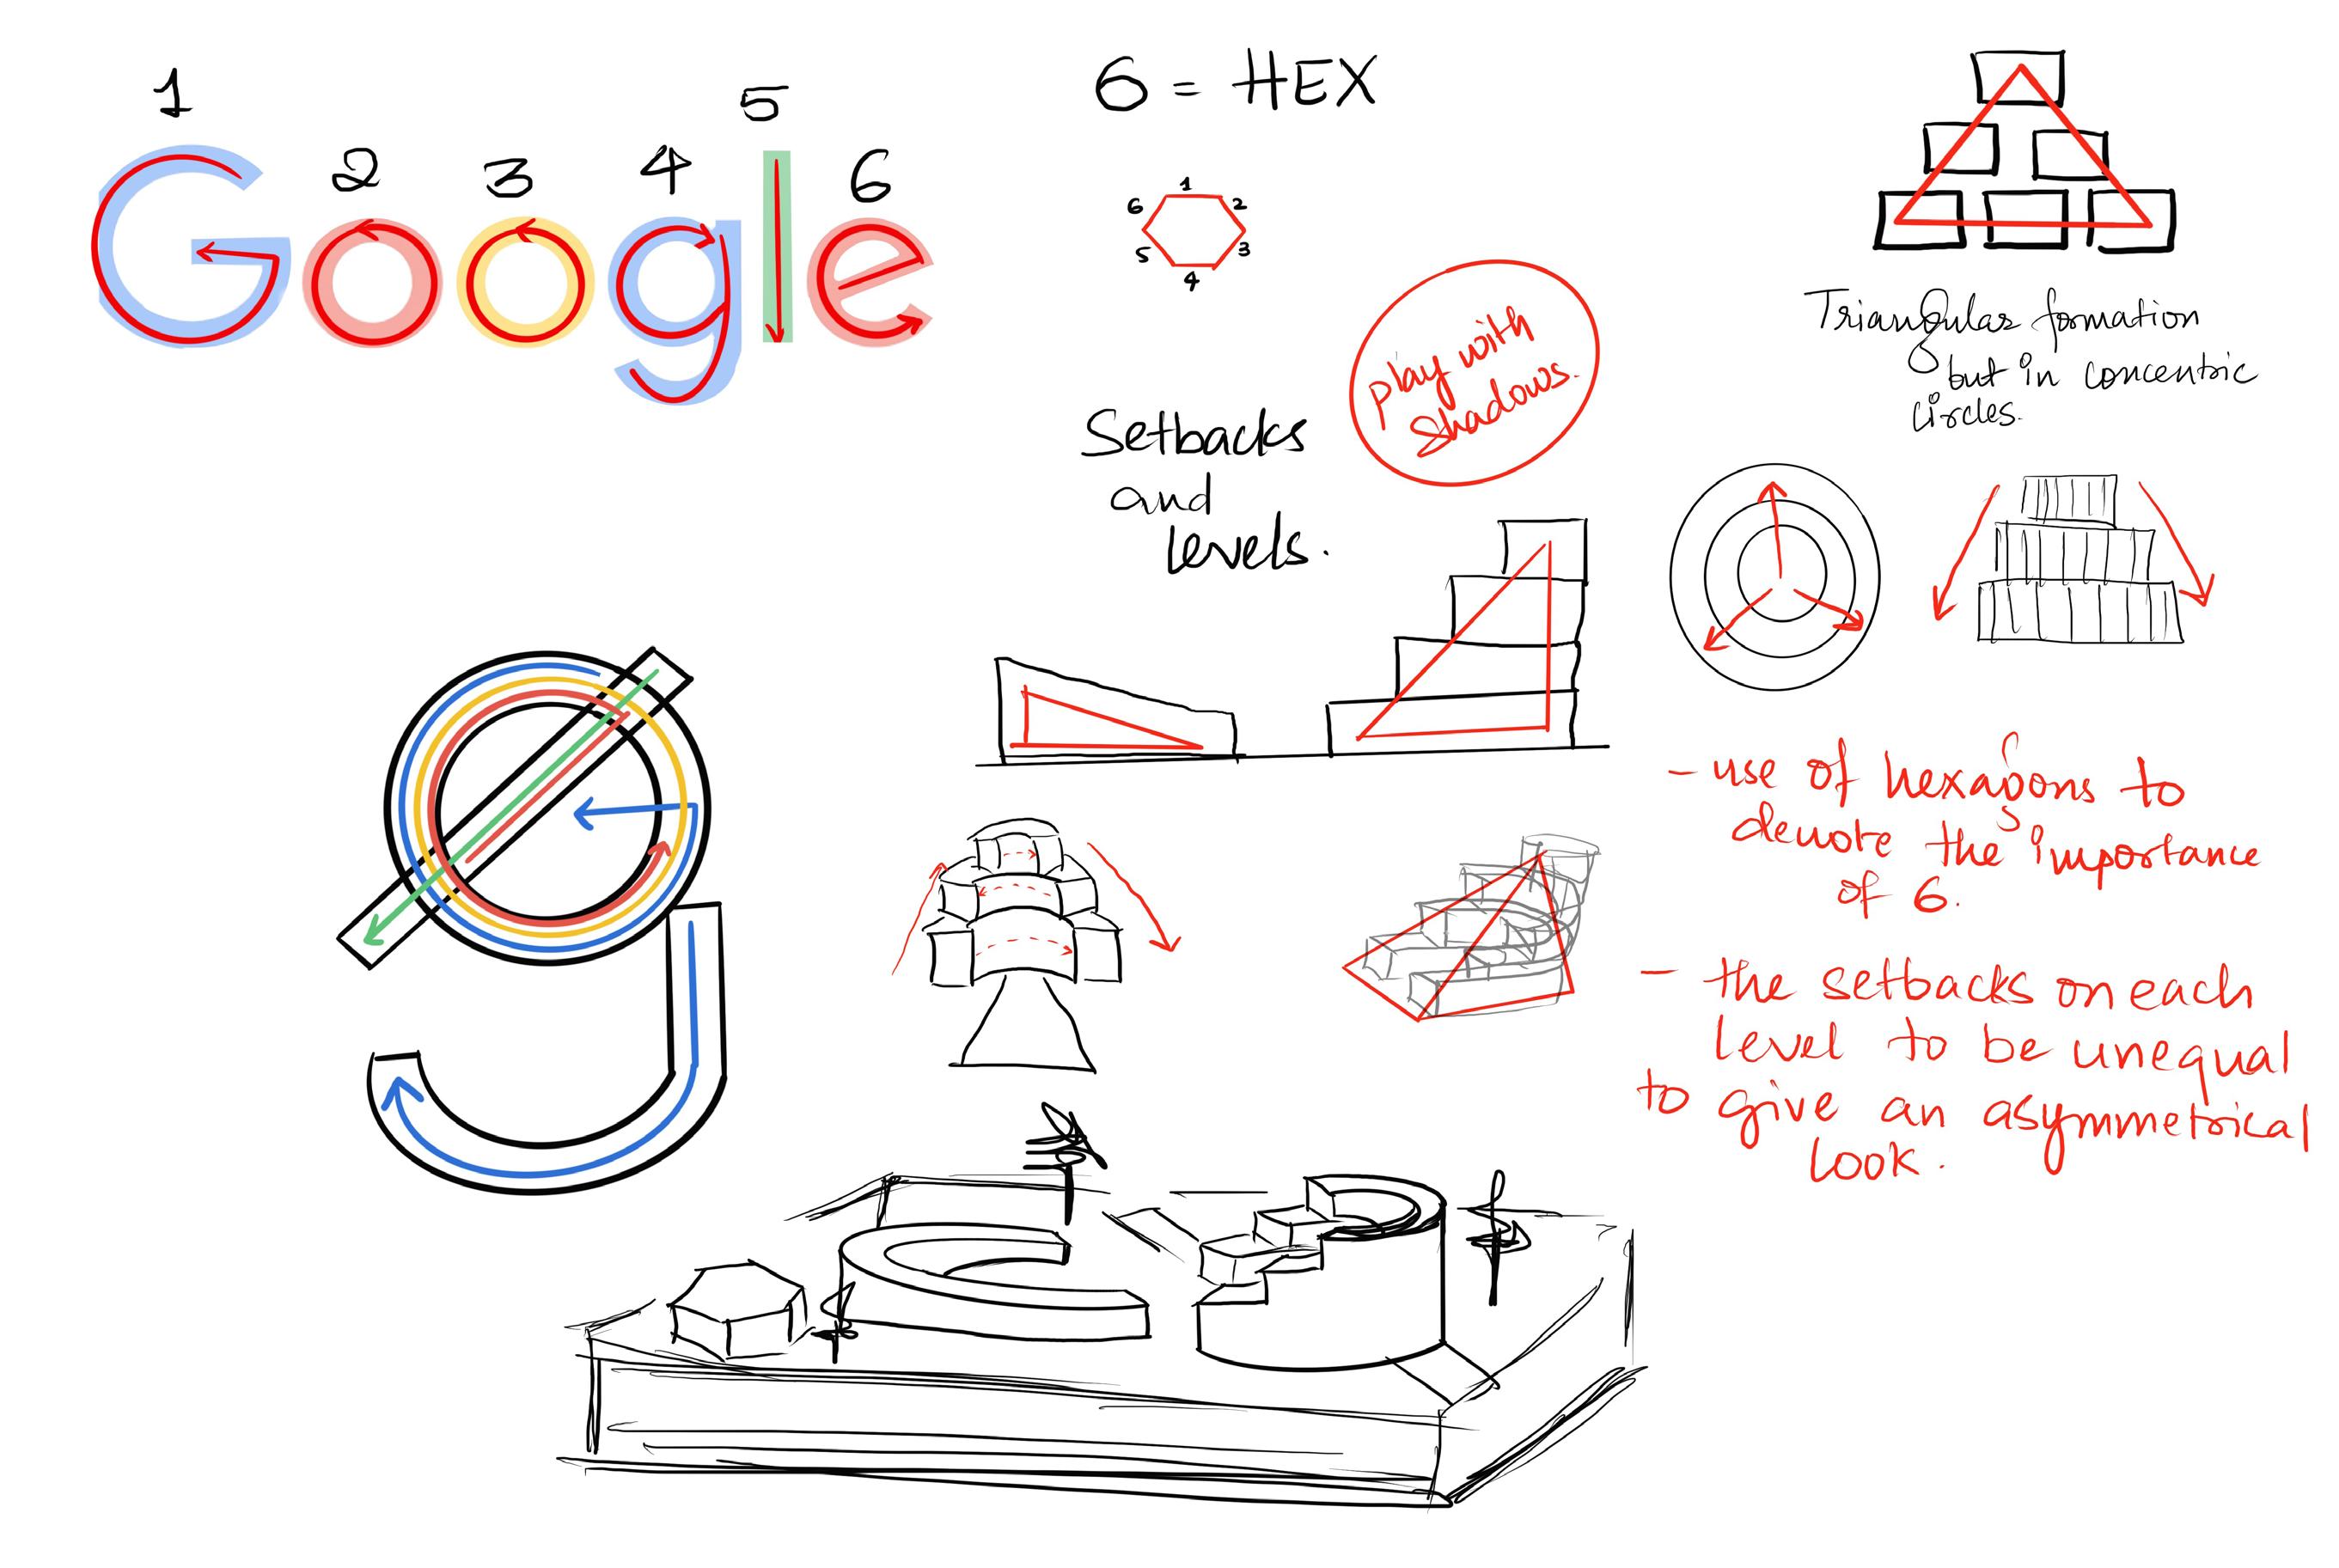 1
2
3
4
5
6
Google
6 = HEX
1
2
3
4
5
6
play with
shadows.
Setbacks
and
levels.
Triangular formation
but in concentric
circles.
- use of hexagons to
denote the importance
of 6.
- the setbacks on each
level to be unequal
to give an asymmetrical
look.